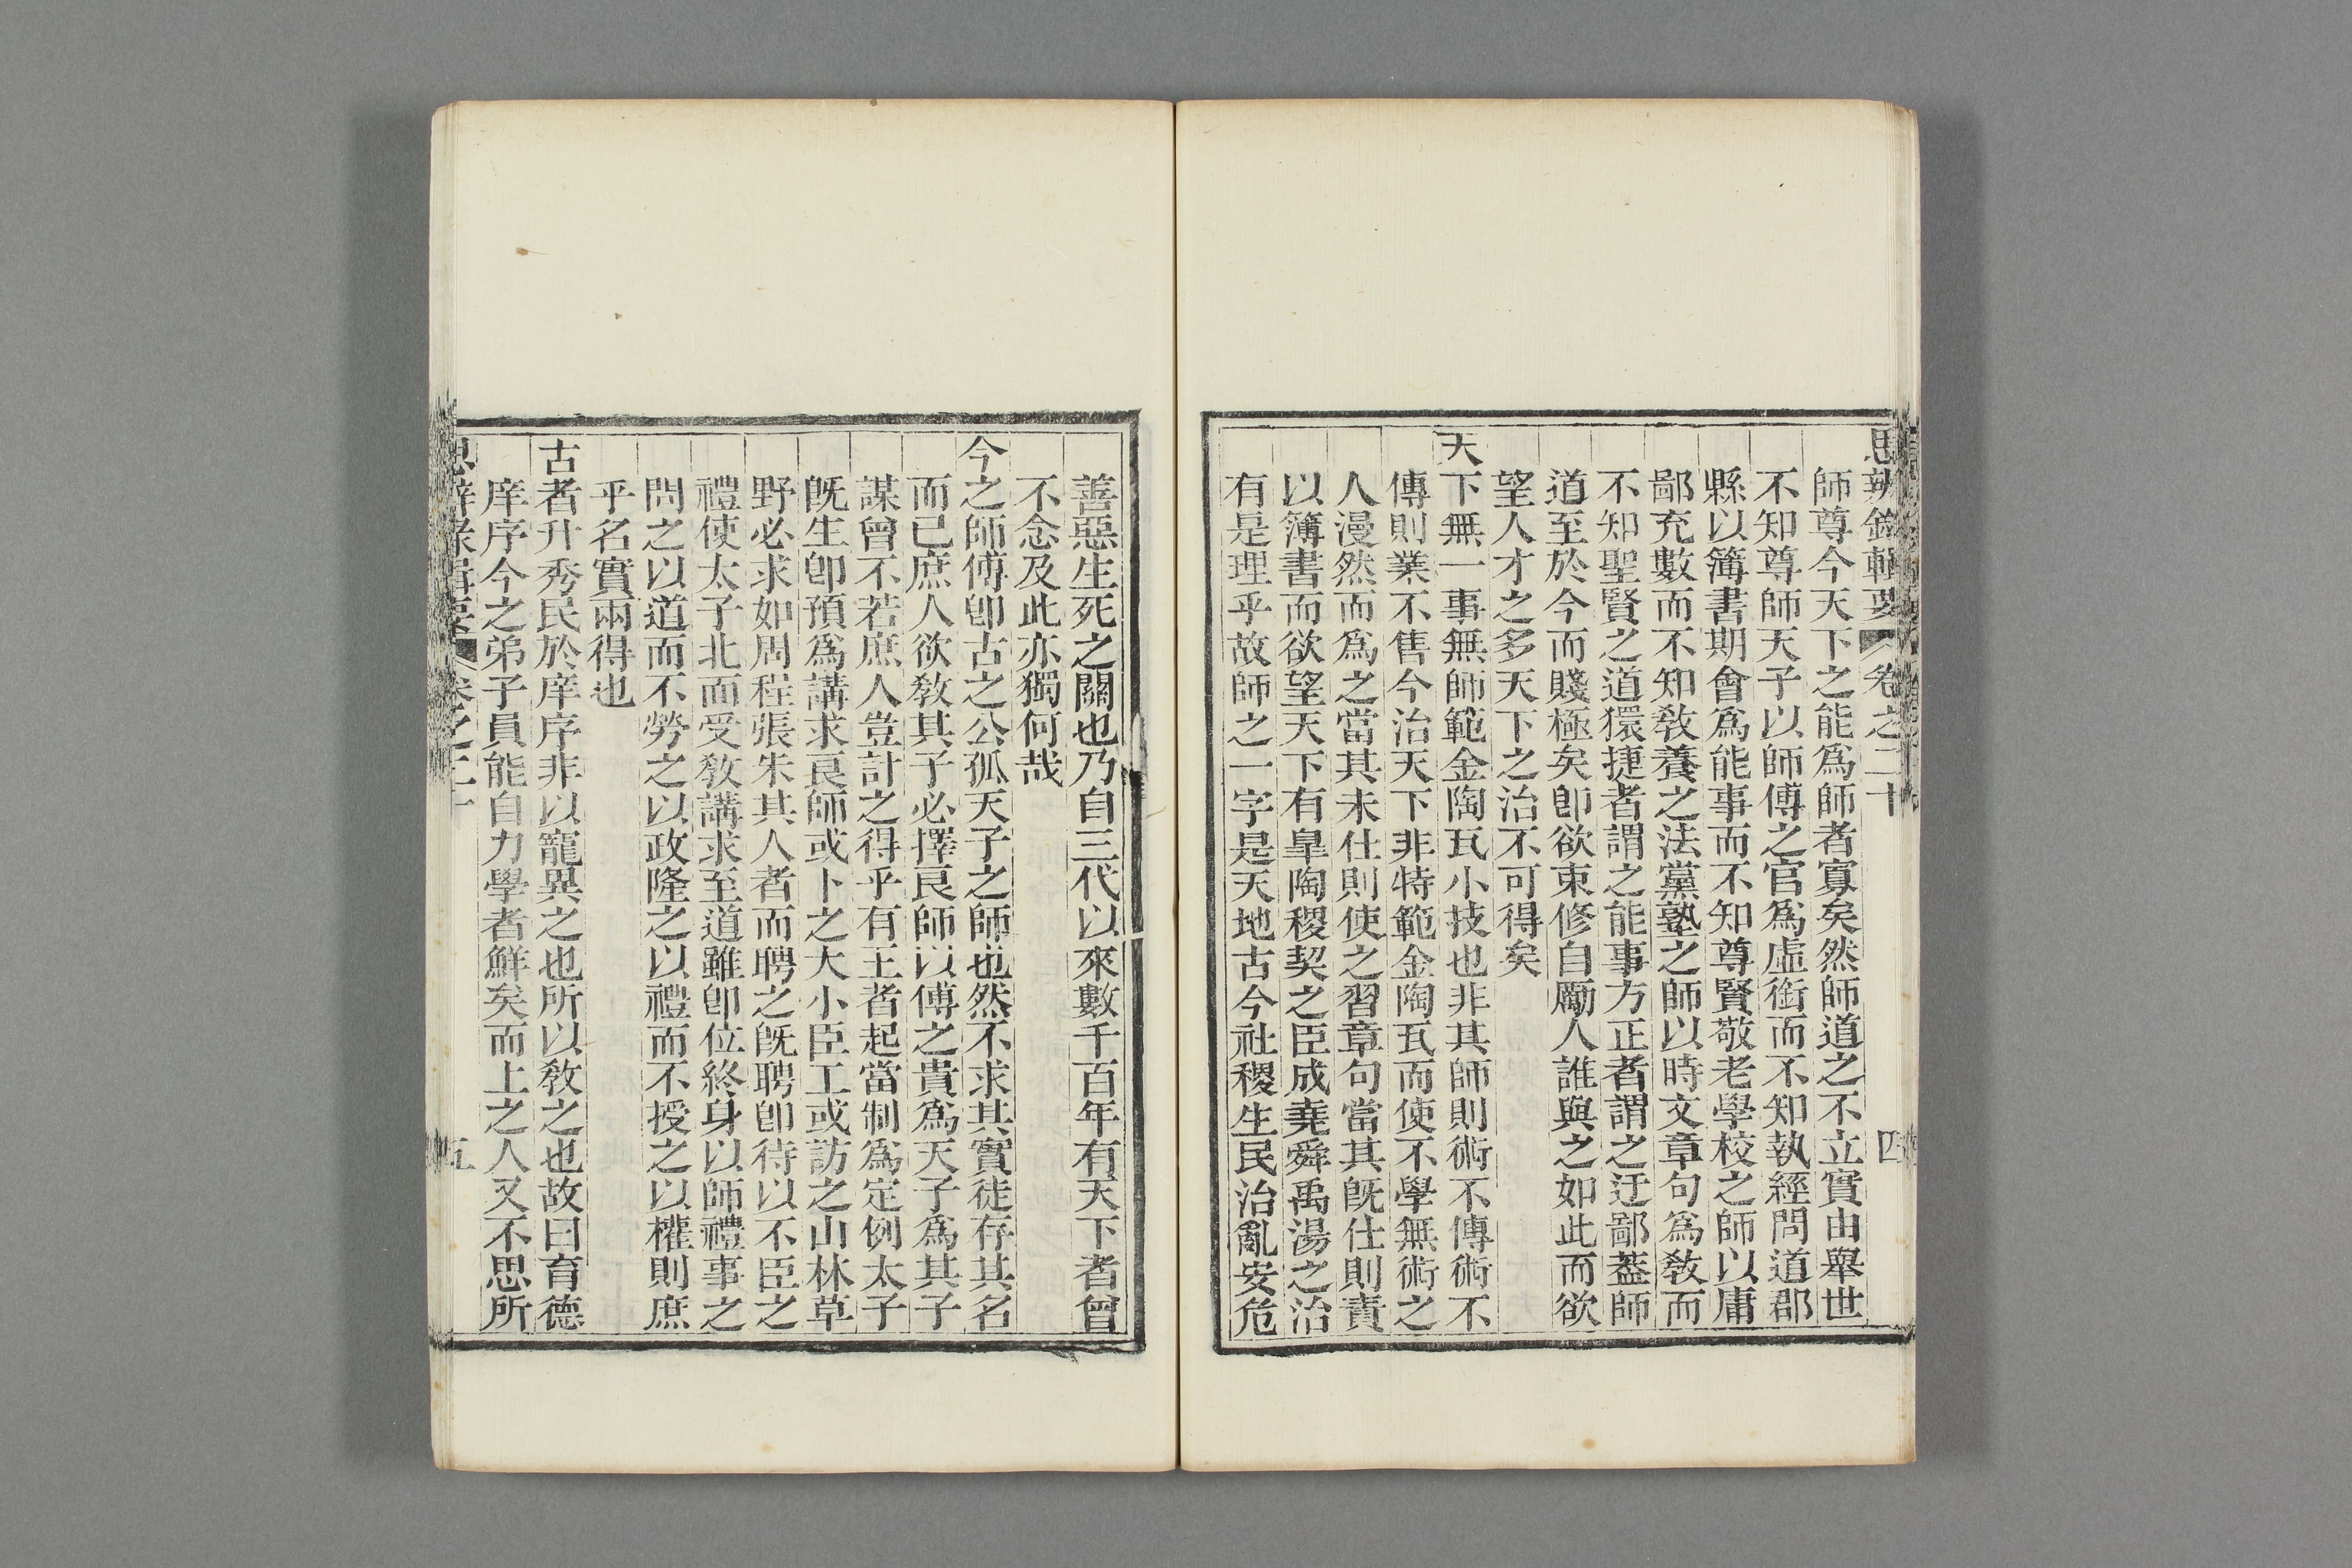 思辨錄輯要 卷之二十 四
師尊今天下之能爲師者寡矣然師道之不立實由舉世
不知尊師天子以師傅之官爲虛銜而不知執經問道郡
縣以簿書期會爲能事而不知尊賢敬老學校之師以庸
鄙充數而不知敎養之法黨塾之師以時文章句爲敎而
不知聖賢之道獧捷者謂之能事方正者謂之迂鄙蓋師
道至於今而賤極矣卽欲束修自勵人誰與之如此而欲
望人才之多天下之治不可得矣
天下無一事無師範金陶瓦小技也非其師則術不傳術不
傳則業不售今治天下非特範金陶瓦而使不學無術之
人漫然而爲之當其未仕則使之習章句當其旣仕則責
以簿書而欲望天下有臯陶稷契之臣成堯舜禹湯之治
有是理乎故師之一字是天地古今社稷生民治亂安危
善惡生死之關也乃自三代以來數千百年有天下者曾
不念及此亦獨何哉
今之師傅卽古之公孤天子之師也然不求其實徒存其名
而已庶人欲敎其子必擇良師以傅之貴爲天子爲其子
謀曾不若庶人豈計之得乎有王者起當制爲定例太子
旣生卽預爲講求良師或卜之大小臣工或訪之山林草
野必求如周程張朱其人者而聘之旣聘卽待以不臣之
禮使太子北而受敎講求至道雖卽位終身以師禮事之
問之以道而不勞之以政隆之以禮而不授之以權則庶
乎名實兩得也
古者升秀民於庠序非以寵異之也所以敎之也故曰育德
庠序今之弟子員能自力學者鮮矣而上之人又不思所
思辨錄輯要 卷之二十 五